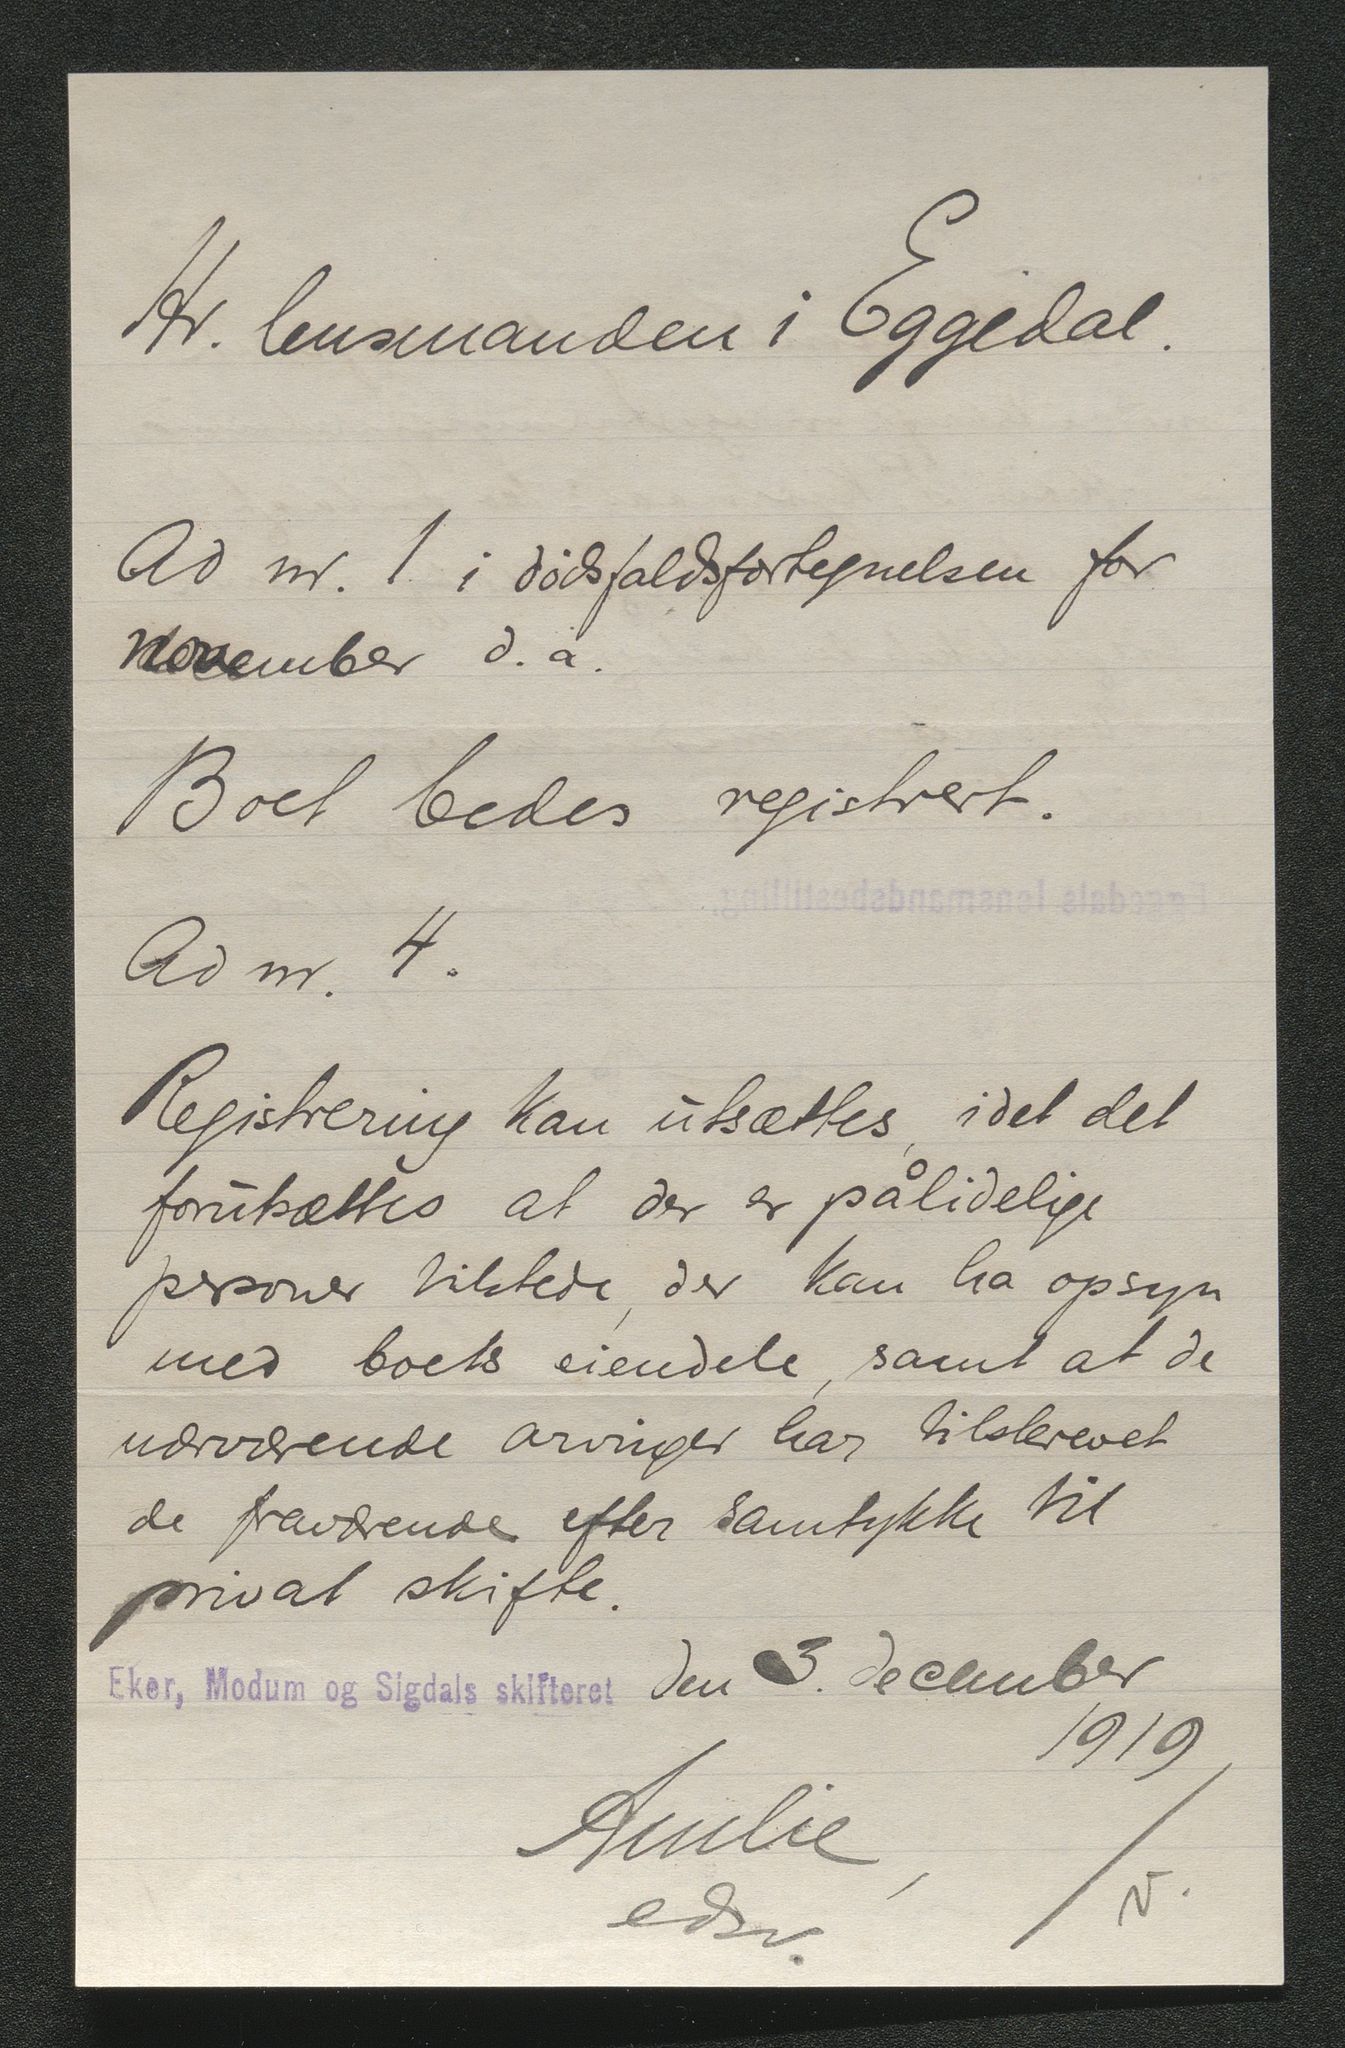 Hr. lensmanden i Eggedal.
Ad nr. 1 i dødsfaldsfortegnelsen for
november d. å.
Boet bedes registrert.
Eggedals lensmandsbestilling.
Ad nr. 4.
Registrering kan utsættes, idet det
forutsættes at der er pålidelige
personer tilstede, der kan ha opsyn
med boets eiendele, samt at de
nærværende arvinger har tilskrevet
de fraværende efter samtykke til
privat skifte.
Eker, Modum og Sigdals skifteret den 3. december
1919
Amlie,
edsv.